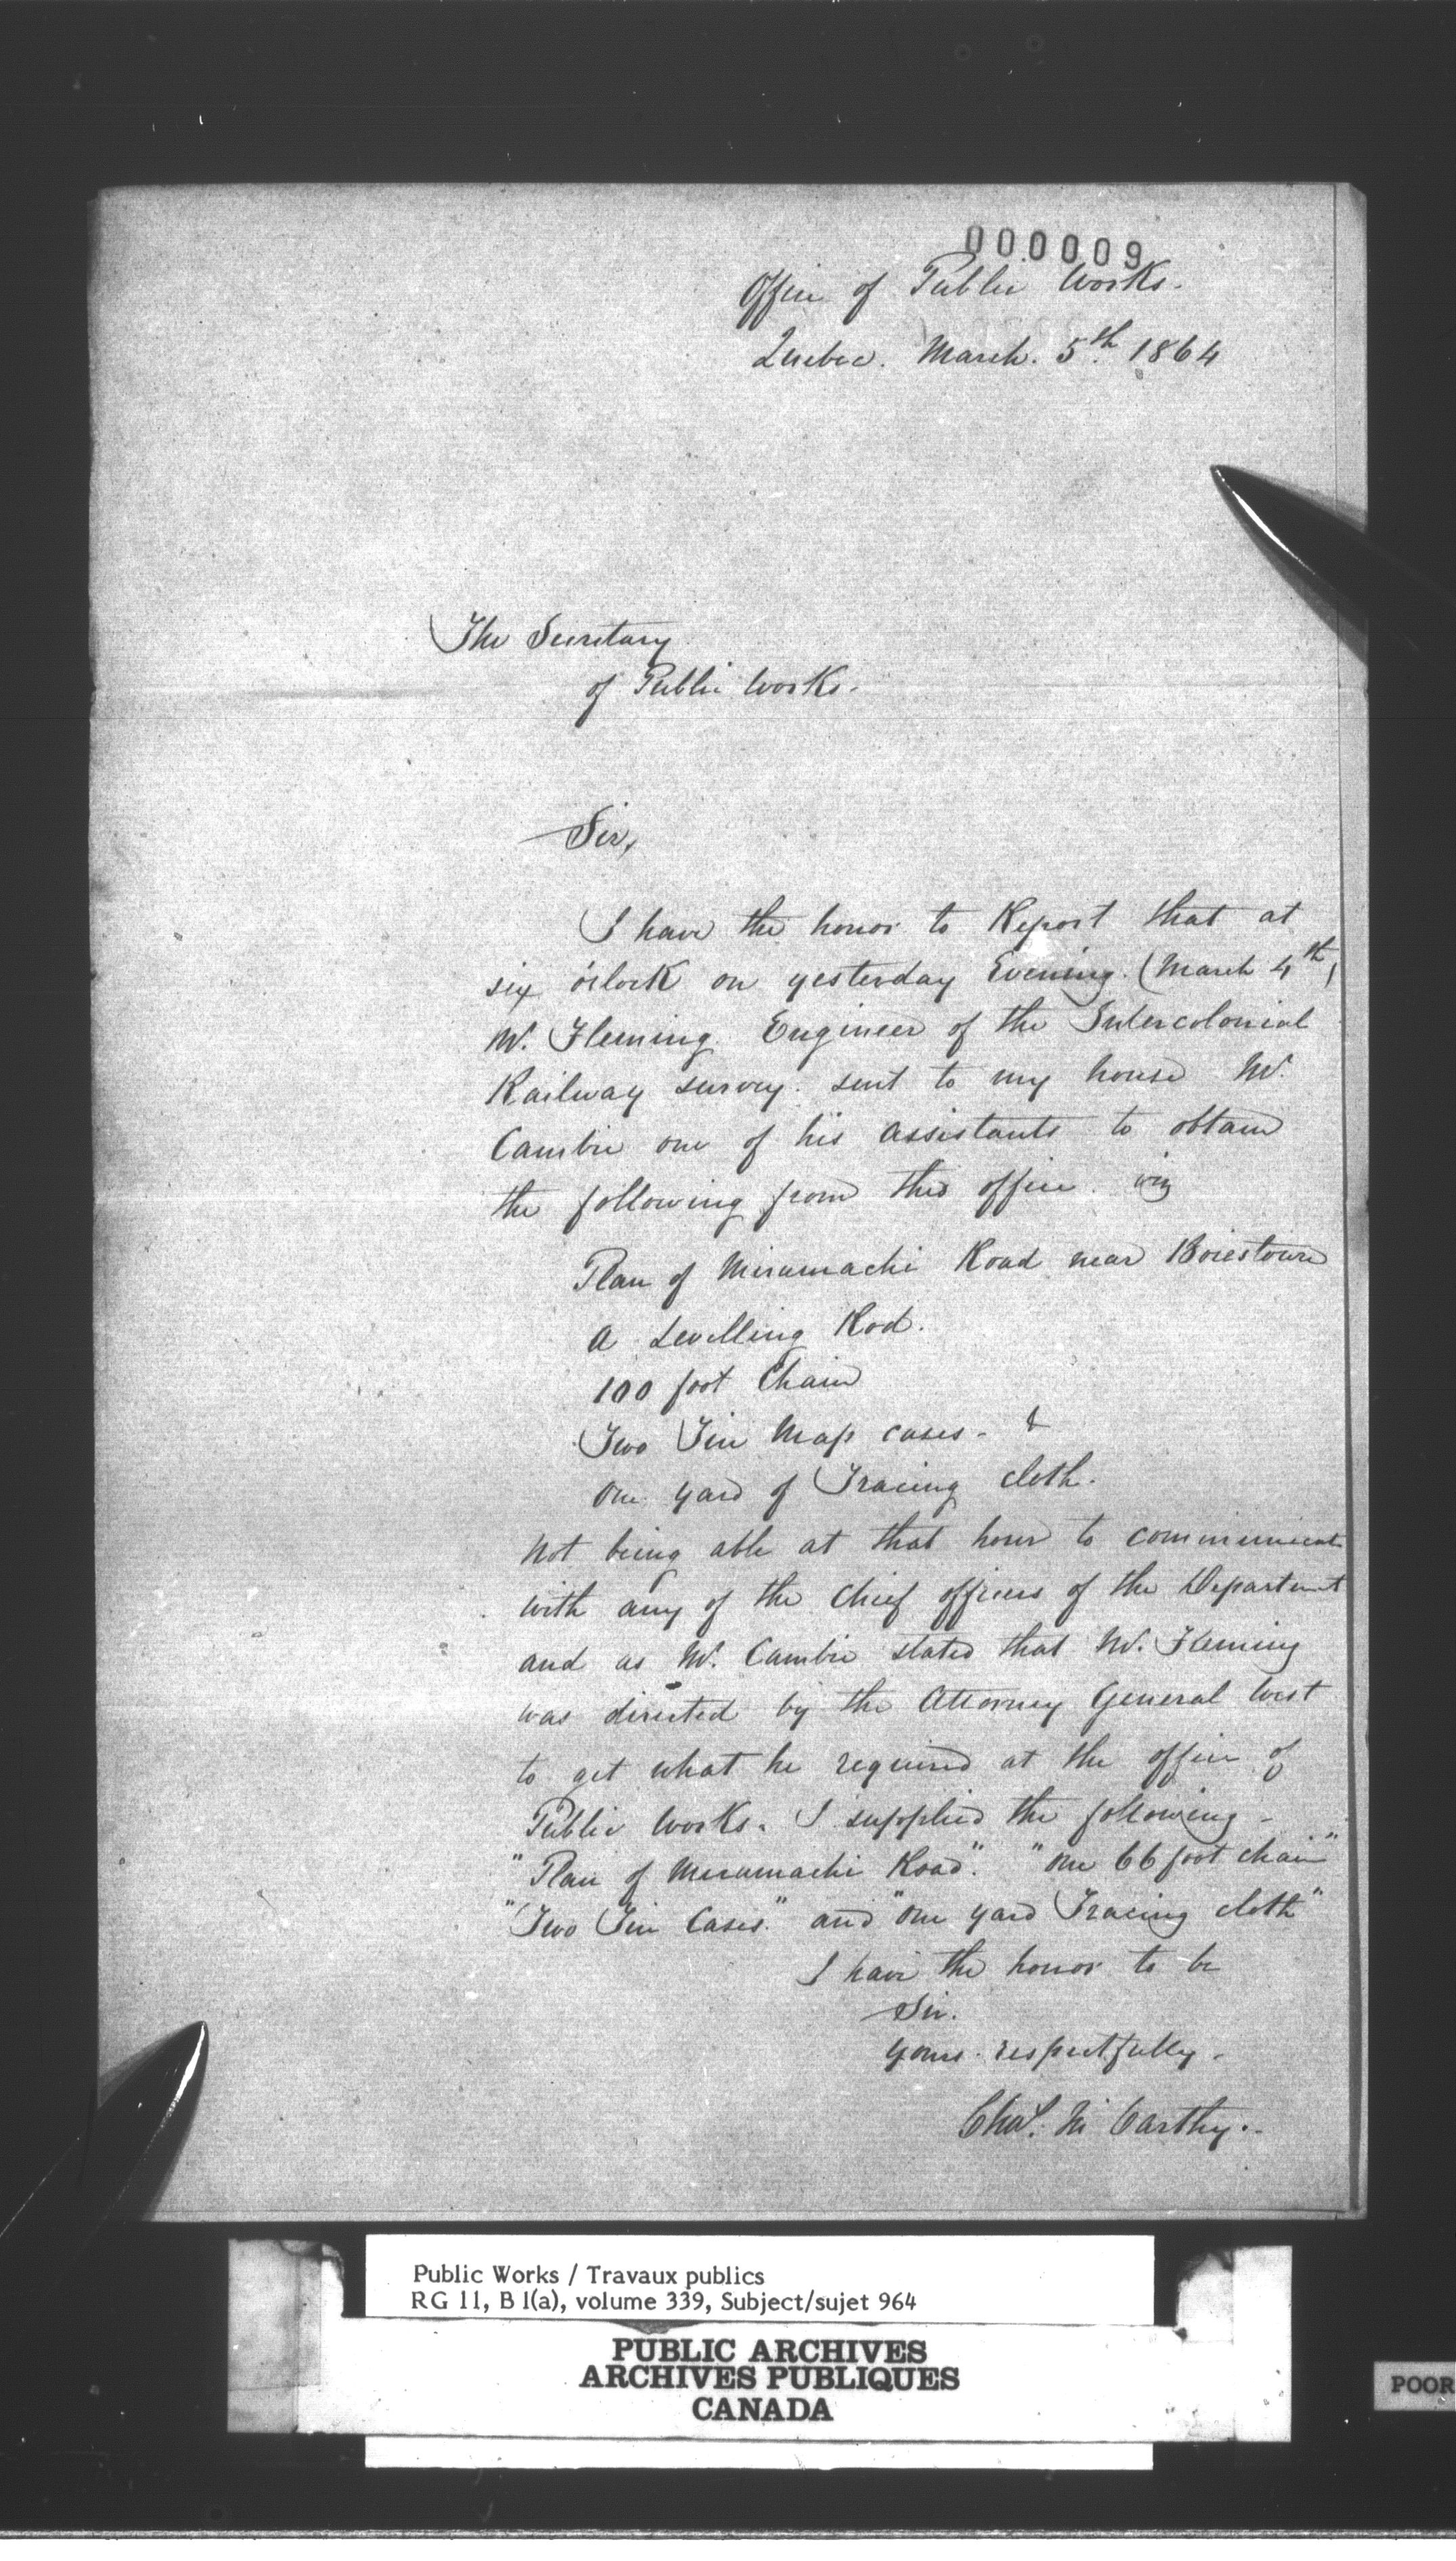 000009
Office of Public Works.
Quebec. March. 5th 1864
The Secretary
of Public Works.
Sir,
I have the honor to Report that at
six o'clock on yesterday Evening. (March 4th)
Mr. Fleming. Engineer of the Intercolonial
Railway survey. sent to my house Mr.
Cambie one of his assistants to obtain
the following from this office. viz
Plan of Miramachi Road near Boiestown
A Levelling Rod.
100 foot Chain
Two Tin Map cases - &
One yard of Tracing cloth.
Not being able at that hour to communicate
with any of the Chief officers of the Department
and as Mr. Cambie stated that Mr. Fleming
was directed by the Attorney General West
to get what he required at the office of
Public Works. I supplied the following -
"Plan of Miramachi Road". "One 66 foot chain"
"Two Tin Cases." and "One yard Tracing cloth"
I have the honor to be
Sir.
Yours respectfully -
Chas. McCarthy.
Public Works / Travaux publics
RG 11, B 1(a), volume 339, Subject/sujet 964
PUBLIC ARCHIVES
ARCHIVES PUBLIQUES
CANADA
POOR